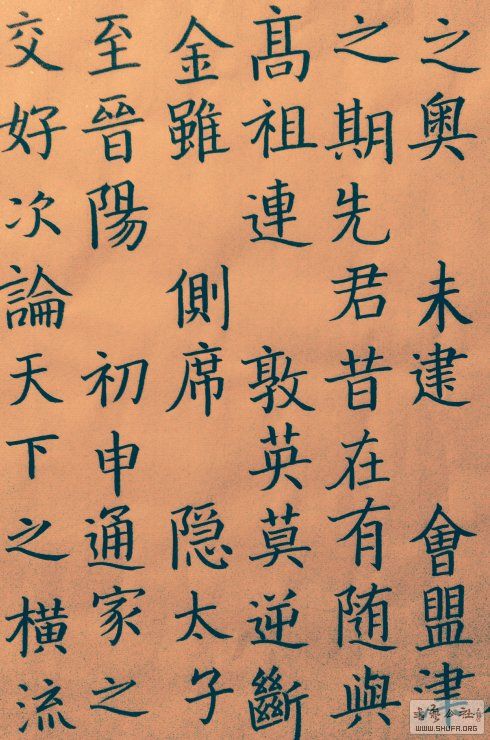 之奥未建會盟津
之期先君昔在有随與
髙祖連敦英莫逆斷
金雖側席隐太子
至晉陽初申通家之
交好次論天下之橫流
WWW.SHUFA.ORG